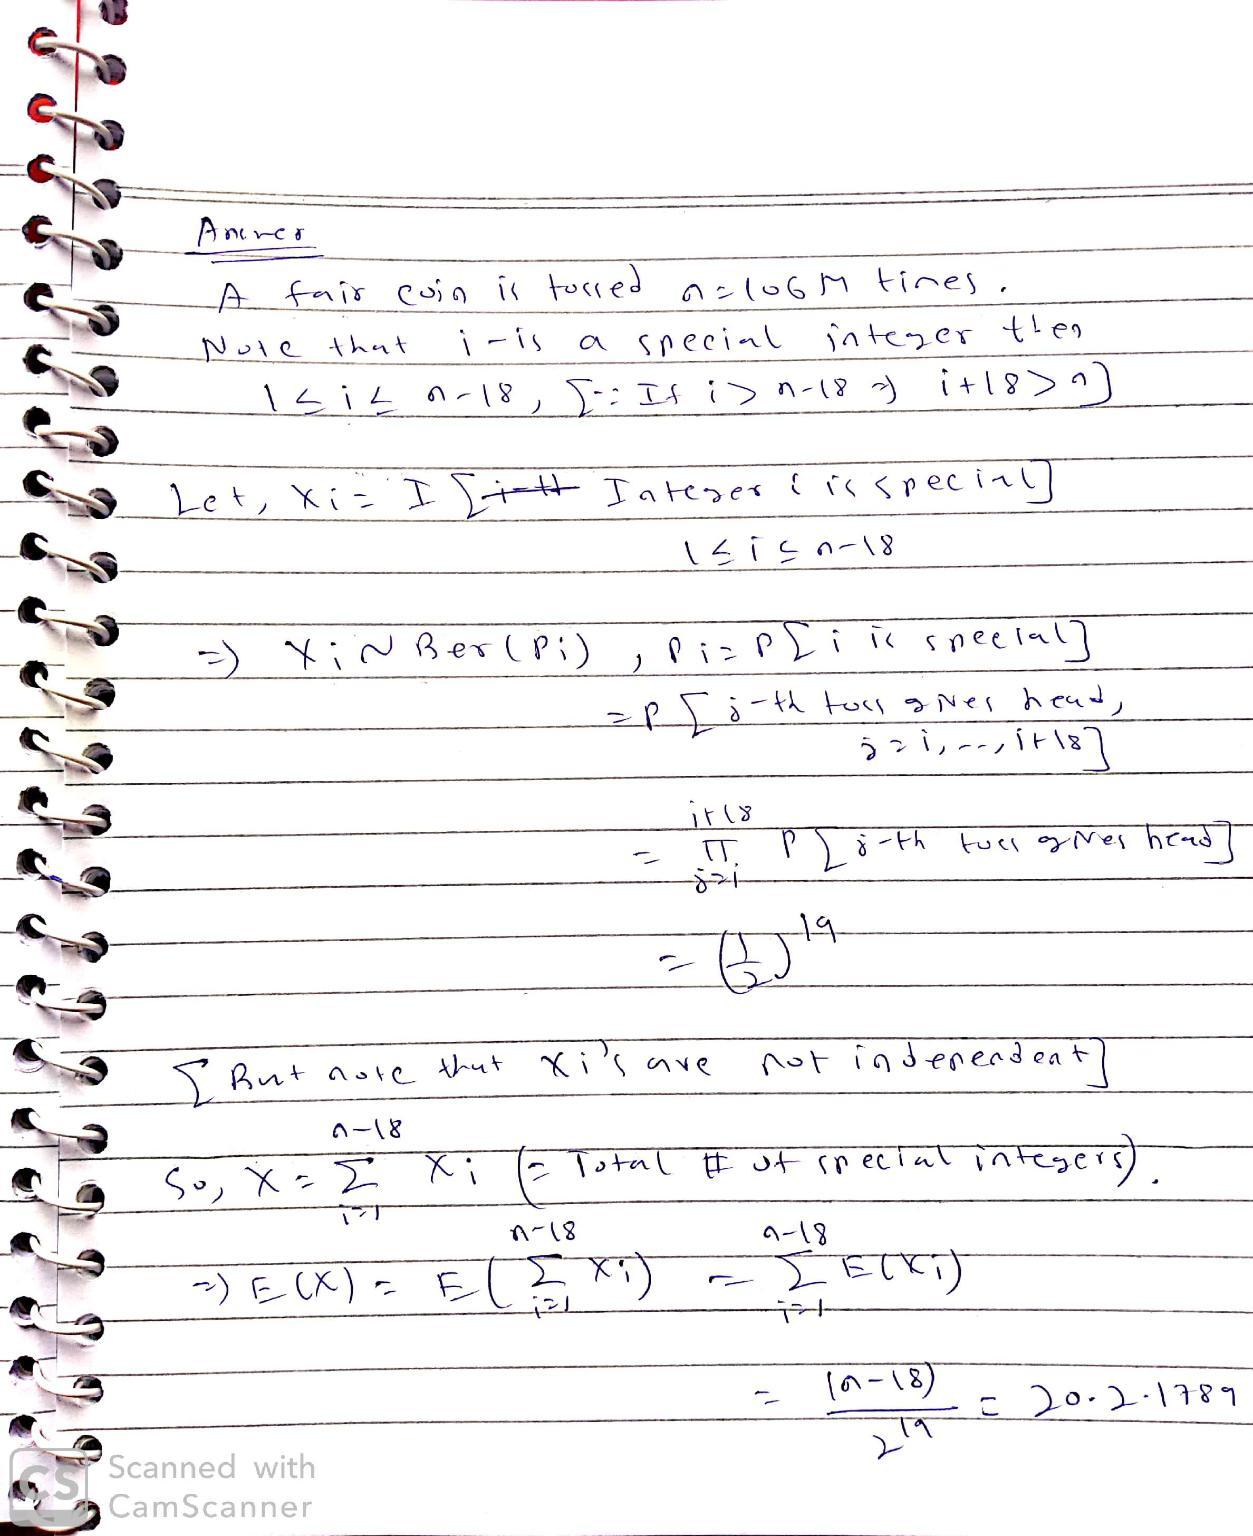 Answer
A fair coin is tossed n=106M times.
Note that i-is a special integer then
1≤i≤ n-18, [∵ If i> n-18 ⇒ i+18>n]
Let, Xi = I [Integer i is special]
1≤i≤n-18
⇒ Xi ~ Ber(Pi) , Pi = P[i is special]
= P[j-th toss gives head,
j=i,--,i+18]
i+18
= Π P[j-th toss gives head]
j=i
= (1/2)^19
[But note that Xi's are not independent]
n-18
So, X = Σ Xi (= Total # of special integers).
i=1
n-18 n-18
⇒ E(X) = E(Σ Xi) = Σ E(Xi)
i=1 i=1
= (n-18)/2^19 = 20.2.1789
Scanned with
CS CamScanner